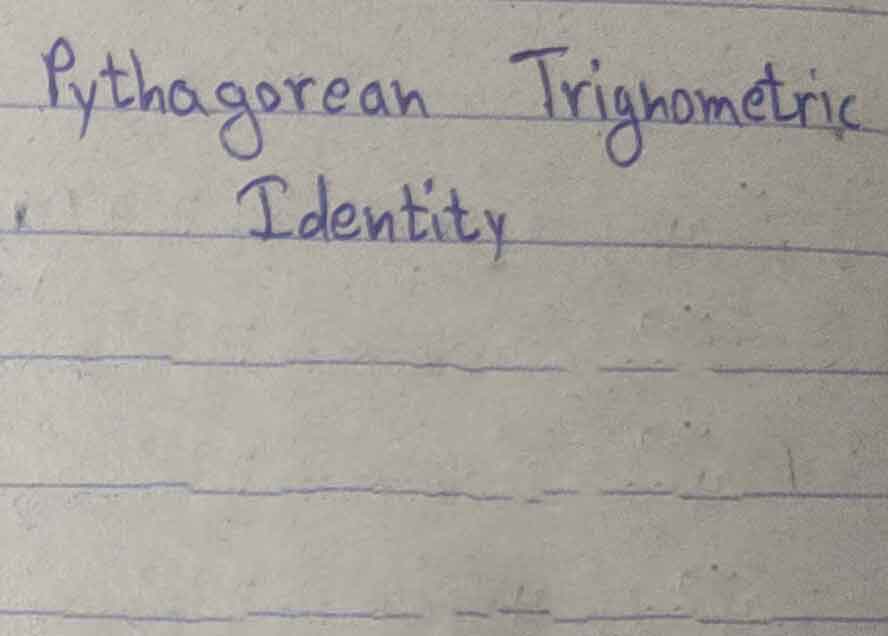 Pythagorean Trignometric
Identity